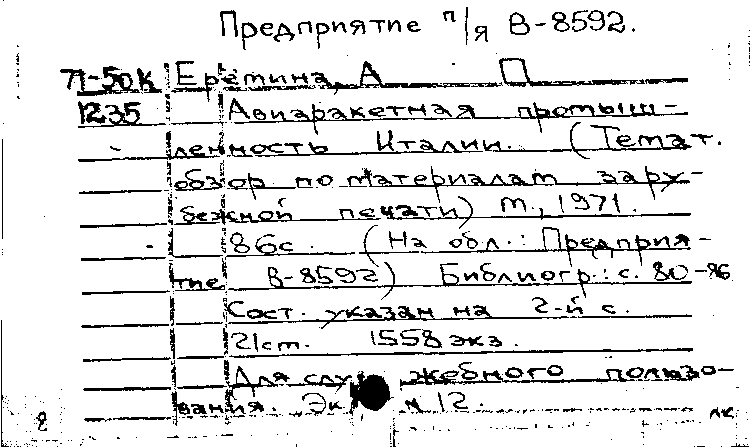 Предприятие п/я В-8592.
71-50К Еремина, А П
1235 Авиаракетная промыш-
ленность Италии. (Темат.
обзор по материалам зару-
бежной печати) М., 1971.
86с. (На обл.: Предприя-
тие В-8592) Библиогр.: с. 80-86
Сост. указан на 2-й с.
21см. 1558 экз.
Для служебного пользо-
вания. Экз. № 12.